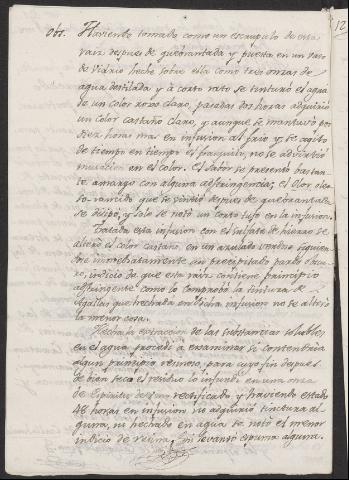 12
Obs. Haviendo tomado como un escrupulo de esta
raiz despues de quebrantada y puesta en un vaso
de vidrio heche sobre ella como tres onzas de
agua destilada, y à corto rato se tinturó el agua
de un color roxo claro, pasadas dos horas adquirió
un color castaño claro, y aunque se mantuvo por
diez horas mas en infusion al frio y se agitó
de tiempo en tiempo el frasquito, no se advirtió
mutacion en el color. El sabor se presentó bastan-
te amargo con alguna adstringencia; el olor oleo-
so-rancido que se sintió despues de quebrantada
se disipó, y solo se notó un corto tufo en la infusion.
Tratada esta infusion con el sulfate de hierro se
alteró el color castaño, en un azulado verdoso siguien-
dose inmediatamente un precipitado pardo obscu-
ro, indicio de que esta raiz contiene principio
adstringente como lo comprobó la tintura de
Agallas que hechada en dicha infusion no se alteró
la menor cosa.
Hecha la extraccion de las substancias solubles
en el agua procedi à examinar si contendria
algun principio resinoso, para cuyo fin despues
de bien seco el residuo lo infundi en una onza
de Espiritu de vino rectificado, y haviendo estado
48 horas en infusion no adquirió tinctura al-
guna, ni hechado en agua se notó el menor
indicio de resina, ni levantó espuma alguna.